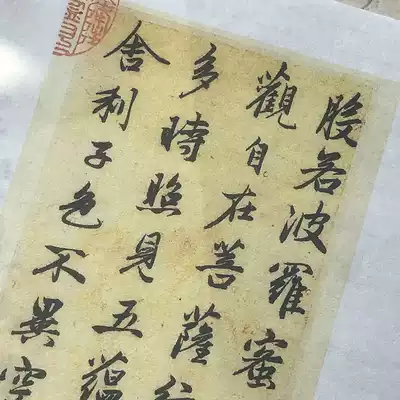 般若波羅蜜
觀自在菩薩行
多時照見五蘊
舍利子色不異空